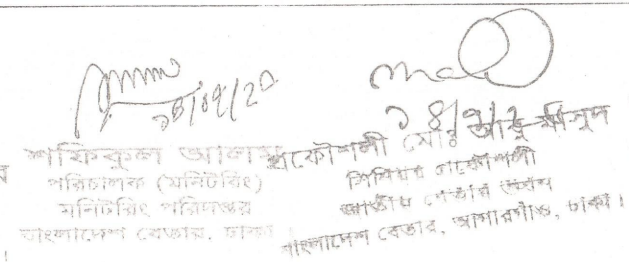 ১৪/০৭/২০
শফিকুল আলম
পরিচালক (মনিটরিং)
মনিটরিং পরিদপ্তর
বাংলাদেশ বেতার, ঢাকা
১৪/৭/২
প্রকৌশলী মোঃ আবু
সিনিয়র প্রকৌশলী
জাতীয় বেতার ভবন
বাংলাদেশ বেতার, আগারগাঁও, ঢাকা।